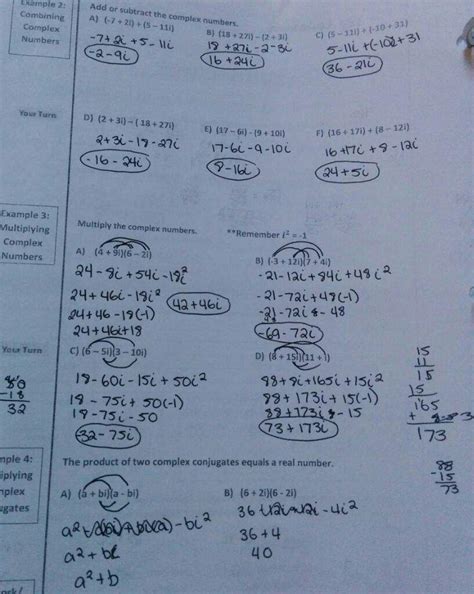 Example 2:
Combining
Complex
Numbers
Add or subtract the complex numbers.
A) (-7 + 2i) + (5 - 11i)
-7+2i +5-11i
-2-9i
B) (18 + 27i) - (2 + 3i)
18 +27i -2-3i
16 + 24i
C) (5 - 11i) + (-10i + 31)
5-11i +(-10i + 31
36 - 21i
Your Turn
D) (2 + 3i) - ( 18 + 27i)
2+3i -18-27i
-16 - 24i
E) (17 - 6i) - (9 + 10i)
17-6i -9-10i
8-16i
F) (16 + 17i) + (8 - 12i)
16+17i + 8 - 12i
24 + 5i
Example 3:
Multiplying
Complex
Numbers
Multiply the complex numbers.
**Remember i² = -1
A) (4 + 9i)(6 - 2i)
24 - 8i + 54i - 18i²
24 + 46i - 18i²
24 + 46 - 18(-1)
24 + 46i + 18
42 + 46i
B) (-3 + 12i)(7 + 4i)
-21 - 12i + 84i + 48i²
-21 - 72i + 48(-1)
-21 - 72i - 48
-69 - 72i
Your Turn
50
-18
32
C) (6 - 5i)(3 - 10i)
18 - 60i - 15i + 50i²
18 - 75i + 50(-1)
18 - 75i - 50
-32 - 75i
D) (8 + 15i)(11 + 1)
88 + 8i + 165i + 15i²
88 + 173i + 15(-1)
88 + 173i - 15
73 + 173i
15
11
15
15
165
+
173
88
-15
73
mple 4:
iplying
mplex
ugates
The product of two complex conjugates equals a real number.
A) (a + bi)(a - bi)
a² - bi²
a² + b
a² + b
B) (6 + 2i)(6 - 2i)
36 - 4i²
36 + 4
40